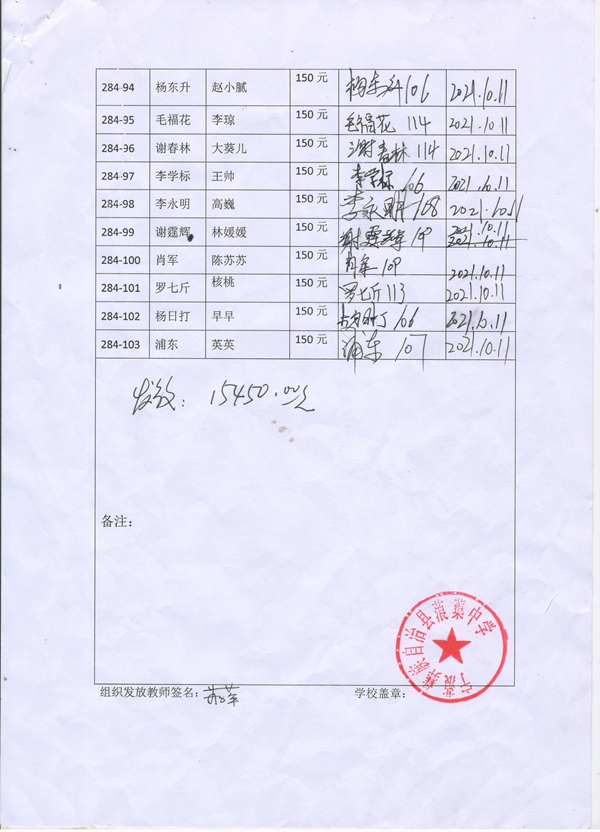 284-94 杨东升 赵小腻 150 元 杨东升 106 2021.10.11
284-95 毛福花 李琼 150 元 毛福花 114 2021.10.11
284-96 谢春林 大葵儿 150 元 谢春林 114 2021.10.11
284-97 李学标 王帅 150 元 李学标 106 2021.10.11
284-98 李永明 高巍 150 元 李永明 108 2021.10.11
284-99 谢霆辉 林媛媛 150 元 谢霆辉 109 2021.10.11
2021.10.11
284-100 肖军 陈苏苏 150 元 肖军 109 2021.10.11
284-101 罗七斤 核桃 150 元 罗七斤 113 2021.10.11
284-102 杨日打 早早 150 元 106 2021.10.11
284-103 浦东 英英 150 元 浦东 107 2021.10.11
15450.00元
备注:
宁蒗彝族自治县蒗蕖中学
组织发放教师签名: 学校盖章: